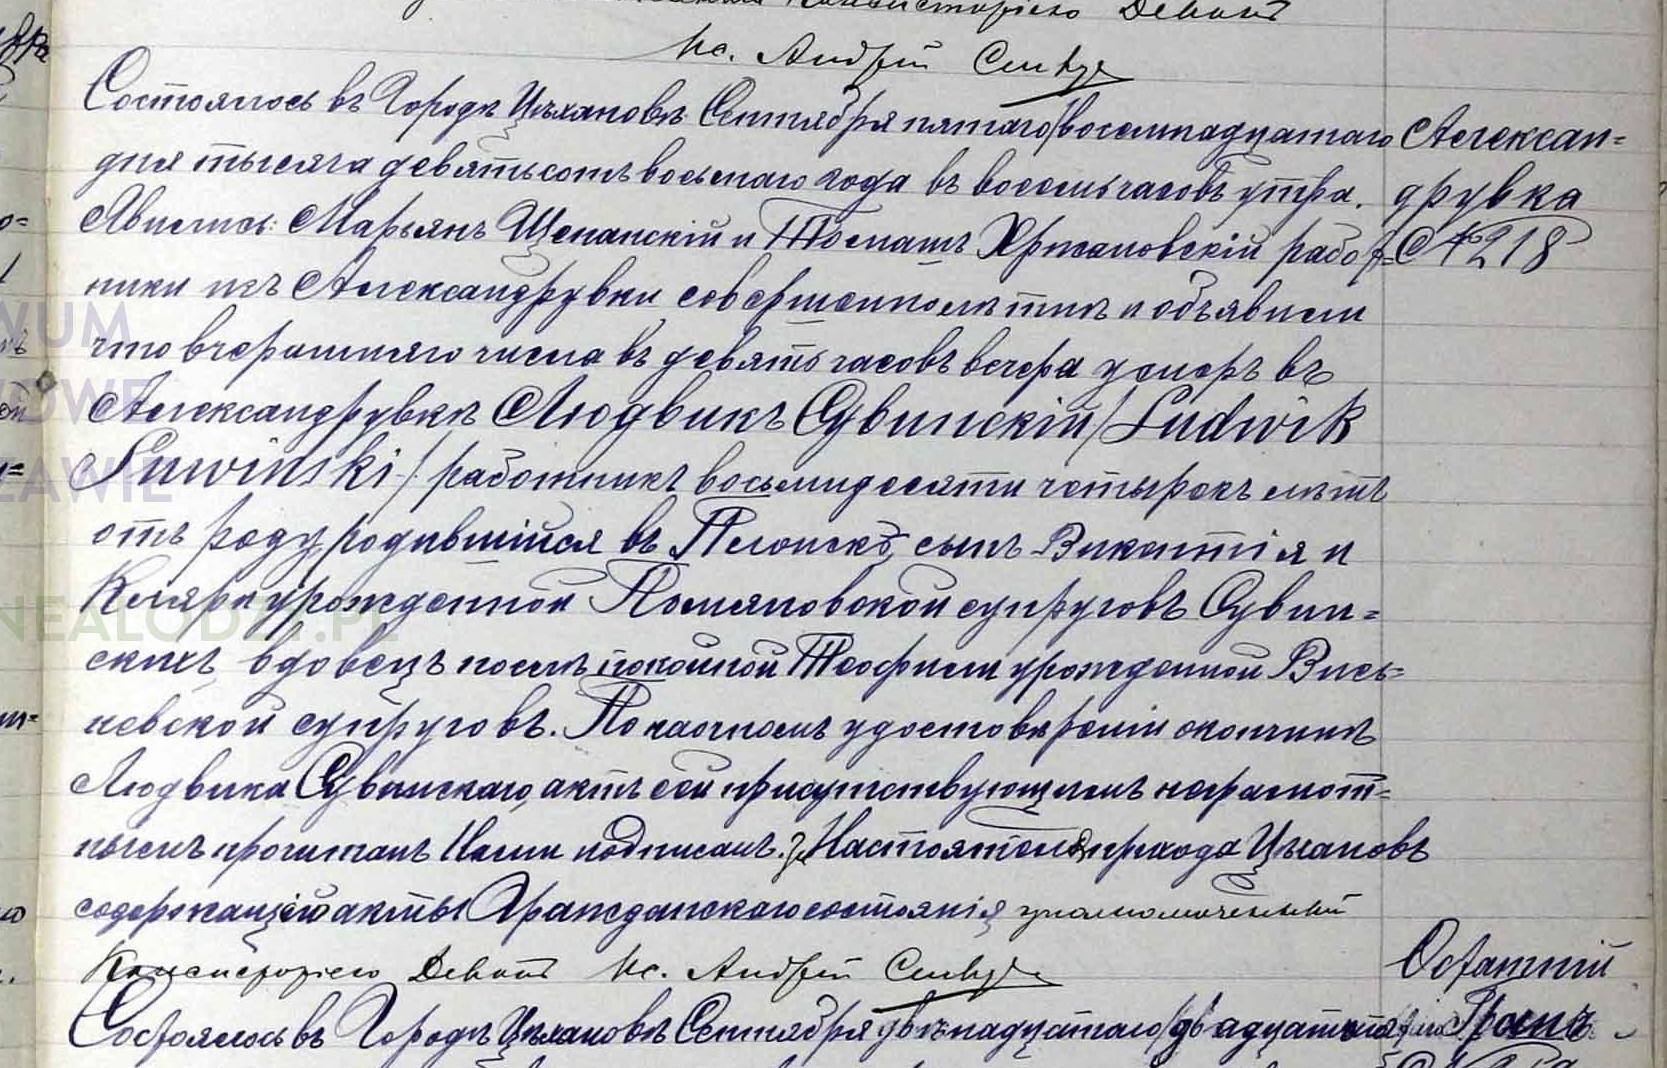 Консисторіею Деканъ
Кс. Андрей
Состоялось въ Городѣ Цѣхановѣ Сентября пятаго/восемнадцатаго
дня тысяча девятьсотъ восьмаго года въ восемь часовъ утра.
Явились: Марьянъ Щепанскій и Томашъ Хржановскій работ-
ники изъ Александрувки совершеннолѣтніе и объявили
что вчерашняго числа въ девять часовъ вечера умеръ въ
Александрувкѣ Людвикъ Сувинскій /Ludwik
Suwinski/ работникъ восьмидесяти четырехъ лѣтъ
отъ роду, родившійся въ Плонскѣ, сынъ Викентія и
Кляры урожденной супруговъ Сувин=
скихъ, вдовецъ послѣ покойной Теофили урожденной Вись-
невской супруговъ. По наочномъ удостовѣреніи о кончинѣ
Людвика Сувинскаго, актъ сей присутствующимъ неграмот-
нымъ прочитанъ Нами подписанъ. Настоятель прихода Цѣхановъ
содержащій акты Гражданскаго состоянія уполномоченный
Консисторіею Деканъ Кс. Андрей
Состоялось въ Городѣ Цѣхановѣ Сентября двѣнадцатаго/двадцать
Алексан=
друвка
№218
Остатній
Грошъ
WUM
OWE
ŁAWIE
NEALODZY.PL